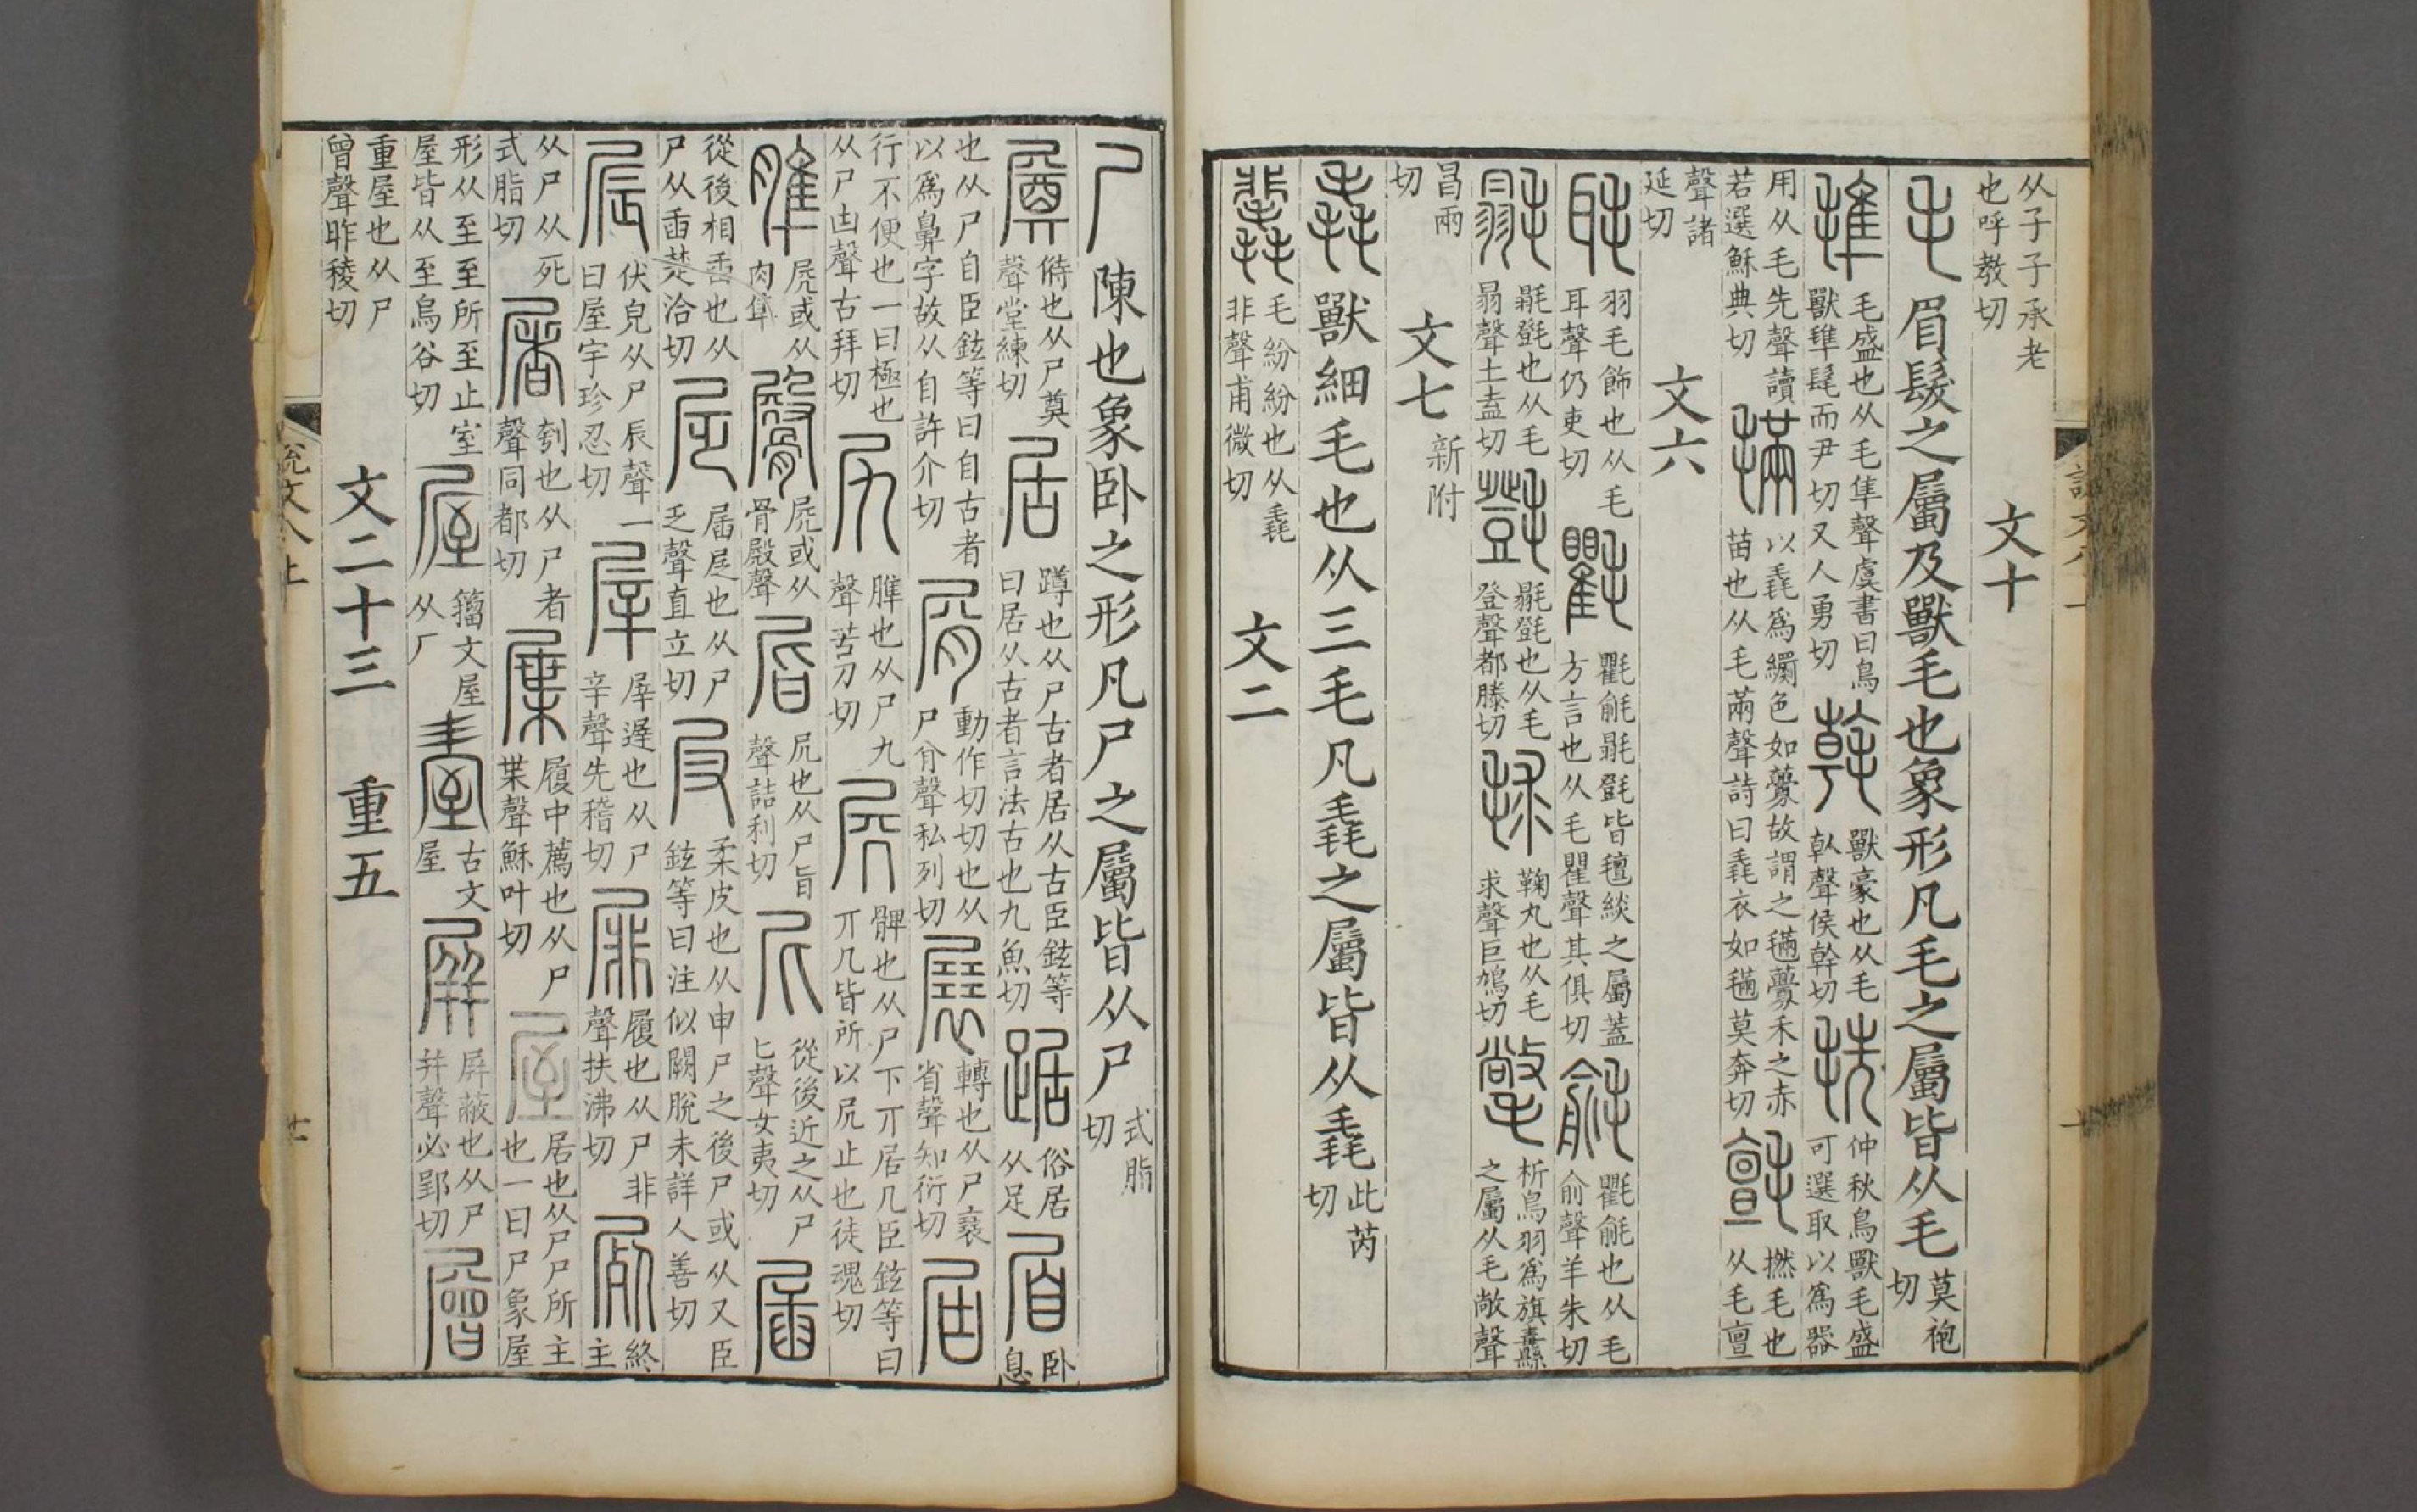 从子子承老
也呼教切
文十
毛 眉髮之屬及獸毛也象形凡毛之屬皆从毛 莫袍切
毛盛也从毛隼聲虞書曰鳥獸𣯍髦而尹切又人勇切
獸豪也从毛倝聲侯幹切
仲秋鳥獸毛盛可選取以爲器用从毛先聲讀若選穌典切
以毳爲繝色如虋故謂之𣯩虋禾之赤苗也从毛㒼聲詩曰毳衣如𣯩莫奔切
撚毛也从毛亶聲諸延切
文六
羽毛飾也从毛耳聲仍吏切
氍毹毾㲪皆氊緂之屬蓋方言也从毛瞿聲其俱切
氍毹也从毛俞聲羊朱切
毾㲪也从毛𦐇聲土盍切
毾㲪也从毛登聲都滕切
鞠丸也从毛求聲巨鳩切
析鳥羽爲旗纛之屬从毛敞聲昌兩切
文七 新附
毳 獸細毛也从三毛凡毳之屬皆从毳 此芮切
毛紛紛也从毳非聲甫微切
文二
尸 陳也象臥之形凡尸之屬皆从尸 式脂切
偫也从尸奠聲堂練切
居 蹲也从尸古者居从古臣鉉等曰居从古者言法古也九魚切
踞 俗居从足
眉 臥息也从尸自臣鉉等曰自古者以爲鼻字故从自許介切
屑 動作切切也从尸㕯聲私列切
展 轉也从尸㐮省聲知衍切
屆 行不便也一曰極也从尸凷聲古拜切
尻 䏶也从尸九聲苦刀切
髀也从尸下丌居几臣鉉等曰丌几皆所以尻止也徒魂切
𡱂或从肉隼
𡱂或从骨殿聲
尻也从尸旨聲詰利切
尼 從後近之从尸匕聲女夷切
從後相臿也从尸从臿楚洽切
届㞏也从尸乏聲直立切
柔皮也从申尸之後尸或从又臣鉉等曰注似闕脫未詳人善切
伏皃从尸辰聲一曰屋宇珍忍切
犀遲也从尸辛聲先稽切
履也从尸非聲扶沸切
終主从尸从死式脂切
屠 刳也从尸者聲同都切
履中薦也从尸枼聲穌叶切
屋 居也从尸尸所主也一曰尸象屋形从至至所至止室屋皆从至烏谷切
籒文屋从厂
古文屋
屏 屛蔽也从尸并聲必郢切
層 重屋也从尸曾聲昨稜切
文二十三 重五
說文八上